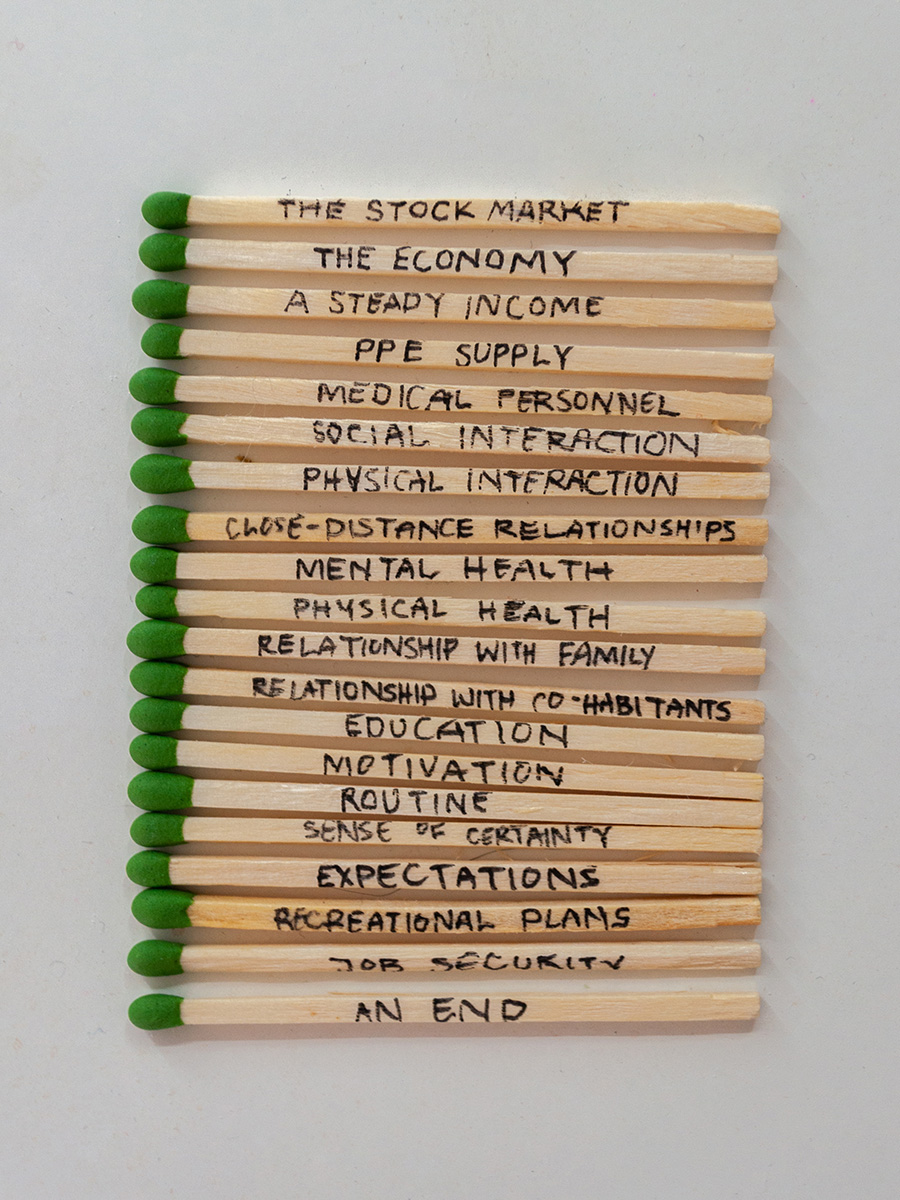 THE STOCK MARKET
THE ECONOMY
A STEADY INCOME
PPE SUPPLY
MEDICAL PERSONNEL
SOCIAL INTERACTION
PHYSICAL INTERACTION
CLOSE-DISTANCE RELATIONSHIPS
MENTAL HEALTH
PHYSICAL HEALTH
RELATIONSHIP WITH FAMILY
RELATIONSHIP WITH CO-HABITANTS
EDUCATION
MOTIVATION
ROUTINE
SENSE OF CERTAINTY
EXPECTATIONS
RECREATIONAL PLANS
JOB SECURITY
AN END